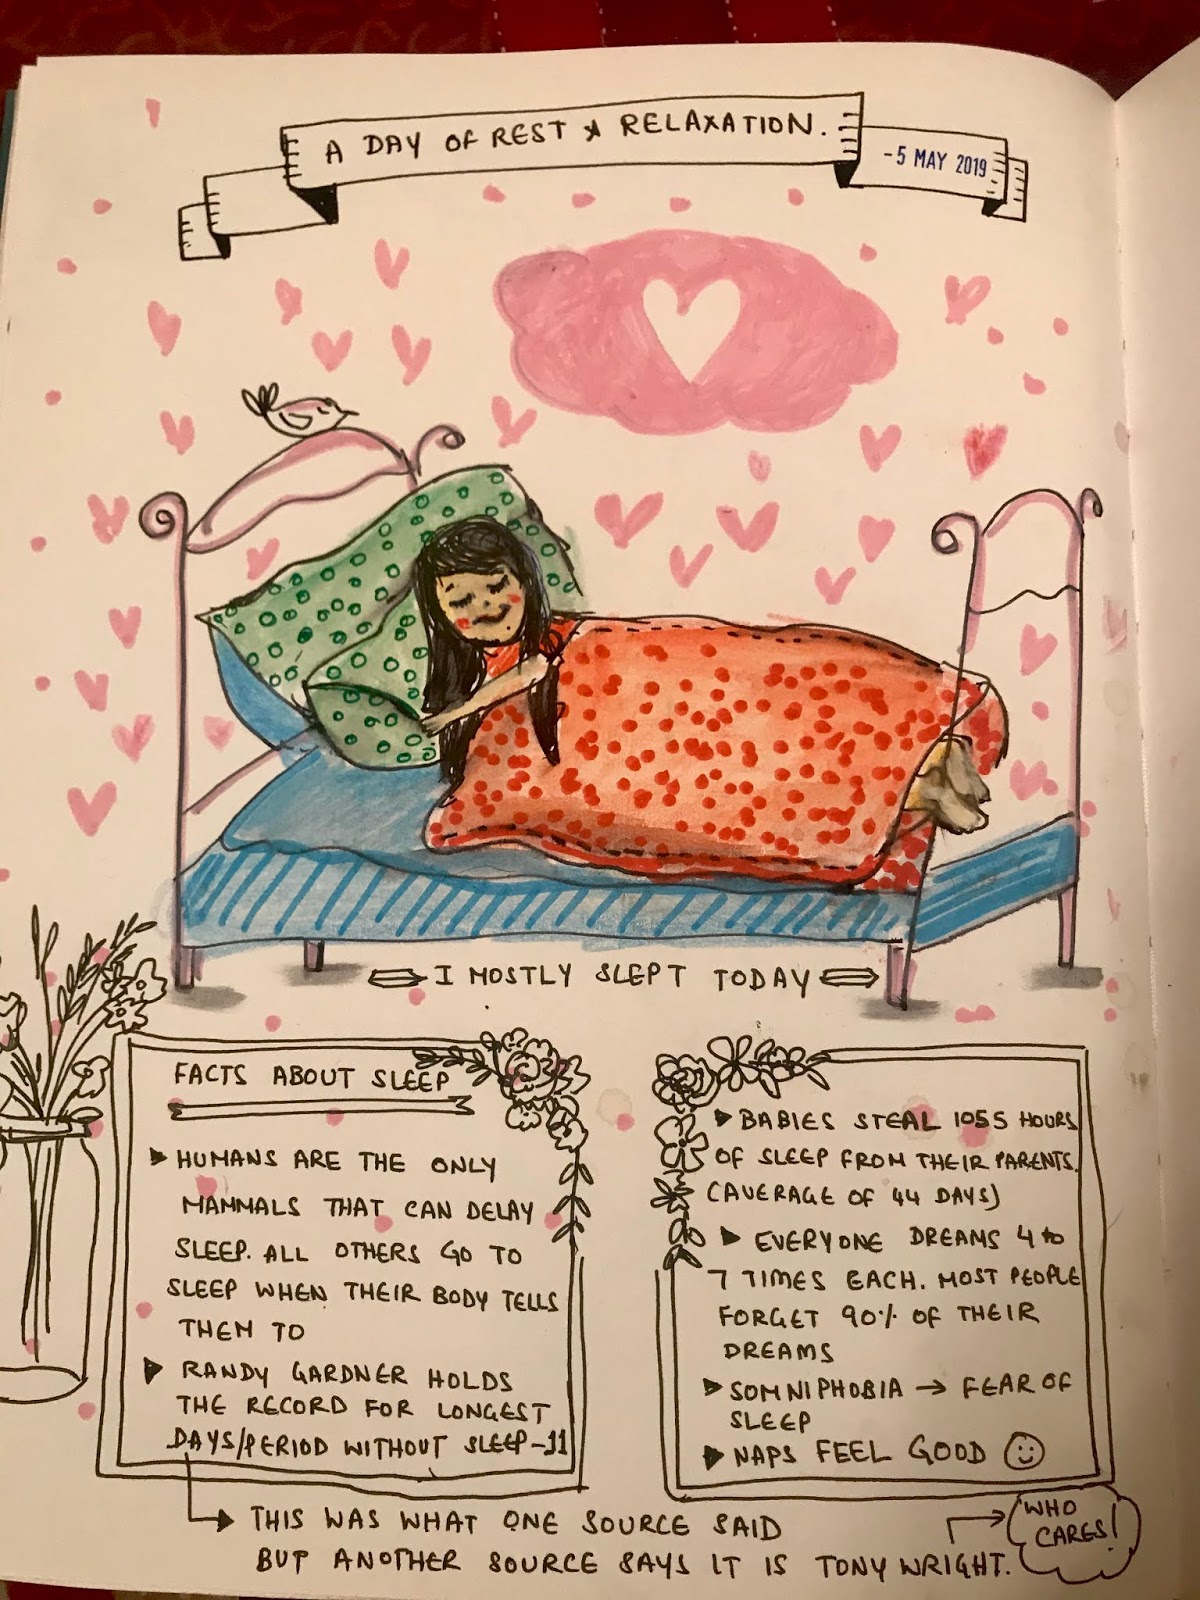 A DAY OF REST & RELAXATION.
-5 MAY 2019
I MOSTLY SLEPT TODAY
FACTS ABOUT SLEEP
HUMANS ARE THE ONLY
MAMMALS THAT CAN DELAY
SLEEP. ALL OTHERS GO TO
SLEEP WHEN THEIR BODY TELLS
THEM TO
RANDY GARDNER HOLDS
THE RECORD FOR LONGEST
DAYS/PERIOD WITHOUT SLEEP-11
BABIES STEAL 1055 HOURS
OF SLEEP FROM THEIR PARENTS.
(AVERAGE OF 44 DAYS)
EVERYONE DREAMS 4 to
7 TIMES EACH. MOST PEOPLE
FORGET 90% OF THEIR
DREAMS
SOMNIPHOBIA → FEAR OF
SLEEP
NAPS FEEL GOOD ☺
THIS WAS WHAT ONE SOURCE SAID
BUT ANOTHER SOURCE SAYS IT IS TONY WRIGHT.
WHO
CARES!